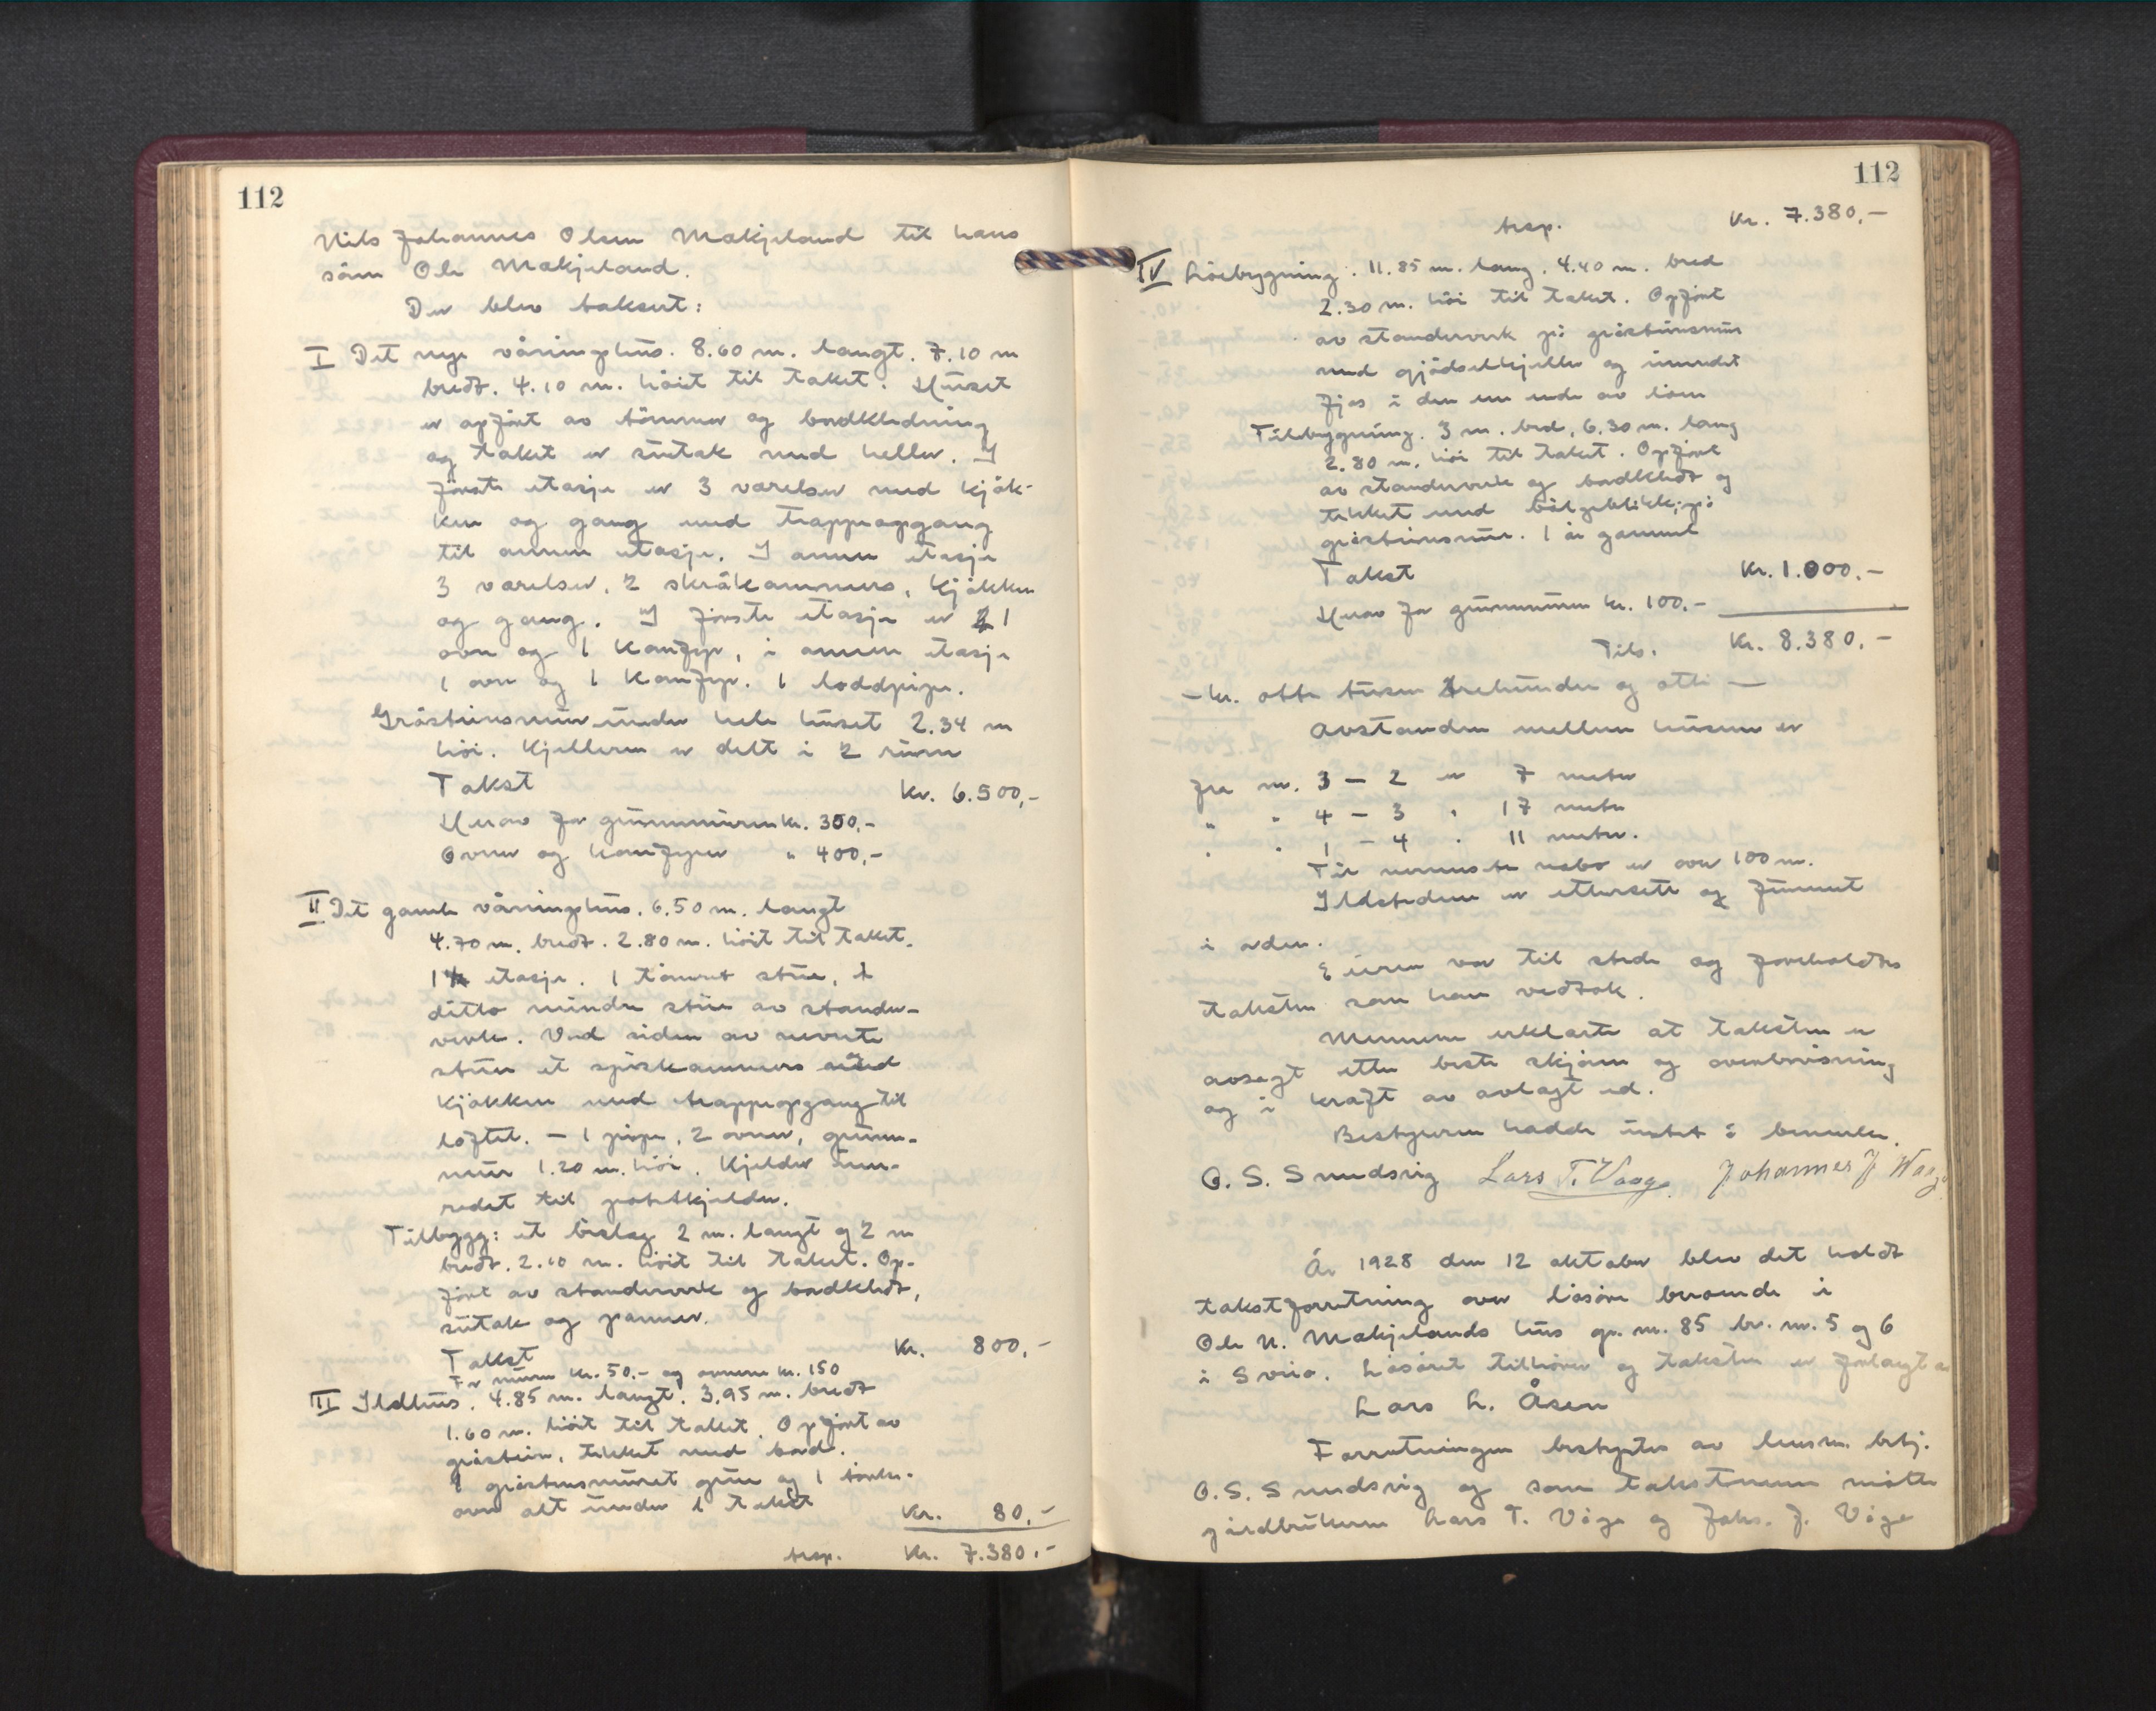 112
Nils Johannes Olsen Mækjeland til hans
sønn Ole Mækjeland.
Der blev taksert:
I Det nye våningshus. 8.60 m. langt. 7.10 m
bredt. 4.10 m. höit til taket. Huset
er opfört av tömmer og bordkledning
og taket er sutak med heller. I
förste etasje er 3 værelser med kjök-
ken og gang med trappeopgang
til annen etasje. I annen etasje
3 værelser, 2 skråkammers, kjökken
og gang. I förste etasje er 1
ovn og 1 komfyr, i annen etasje
1 ovn og 1 komfyr. 1 loddpipe.
Gråstensmur under hele huset 2.34 m
höi. Kjelleren er delt i 2 rum
Takst kr. 6.500,-
Herav for grunnmuren kr. 300,-
Ovner og komfyrer " 400,-
II Det gamle våningshus. 6.50 m. langt
4.70 m. bredt. 2.80 m. höit til taket.
1½ etasje. 1 tömret stue, 1
ditto mindre stue av stender-
verk. Ved siden av nevnte
stuer et spiskammers med
kjökken med trappeopgang til
loftet. - 1 pipe, 2 ovner, grunn-
mur 1.20 m. höi. Kjelder inn-
redet til potetkjelder.
Tilbygg: et bislag 2 m. langt og 2 m
bredt. 2.10 m. höit til taket. Op-
fört av stenderverk og bordkledt,
sutak og panner.
Takst Kr. 800,-
For muren kr. 50.- og ovnene kr. 150
III Ildhus. 4.85 m. langt. 3.95 m. bredt
1.60 m. höit til taket. Opfört av
gråsten, tekket med bord.
1 gråstensmuret grue og 1 törke-
ovn alt under 1 takst
Kr. 80,-
trsp. Kr. 7.380.-
112
trsp. Kr. 7.380,-
IV Löebygning. 11.85 m. lang. 4.40 m. bred
2.30 m. höi til taket. Opfört
av stenderverk på gråstensmur
med gjödselkjeller og innredet
fjös i den ene ende av löen
Tilbygning. 3 m. bred, 6.30 m. lang
2.80 m. höi til taket. Opfört
av stenderverk og bordkledt og
tekket med bölgeblikk, på
gråstensmur. 1 år gammel
Takst Kr. 1.000.-
Herav for grunnmuren kr. 100.-
Tils. Kr. 8.380,-
- kr. otte tusen trehundre og otti -
Avstanden mellem husene er
fra nr. 3 - 2 er 7 meter
" " 4 - 3 " 17 meter
" " 1 - 4 " 11 meter.
Til nermeste nabo er over 100 m.
Ildstedene er ettersett og funnet
i orden.
Eieren var til stede og foreholdtes
taksten som han vedtok.
Mennene erklærte at taksten er
avsagt etter beste skjönn og overbevisning
og i kraft av avlagt ed.
Bestyreren hadde intet å bemerke.
O. S. Smedsvig Lars T. Vaage Johannes J Waage
År 1928 den 12 oktober blev det holdt
takstforretning over lösöre beroende i
Ole N. Mækjelands hus gr. nr. 85 br. nr. 5 og 6
i Sveio. Lösöret tilhörer og taksten er forlangt av
Lars L. Åsen
Forretningen bestyrtes av lensm. betj.
O. S. Smedsvig og som takstmenn mötte
gårdbrukerne Lars T. Våge og Johs. J. Våge